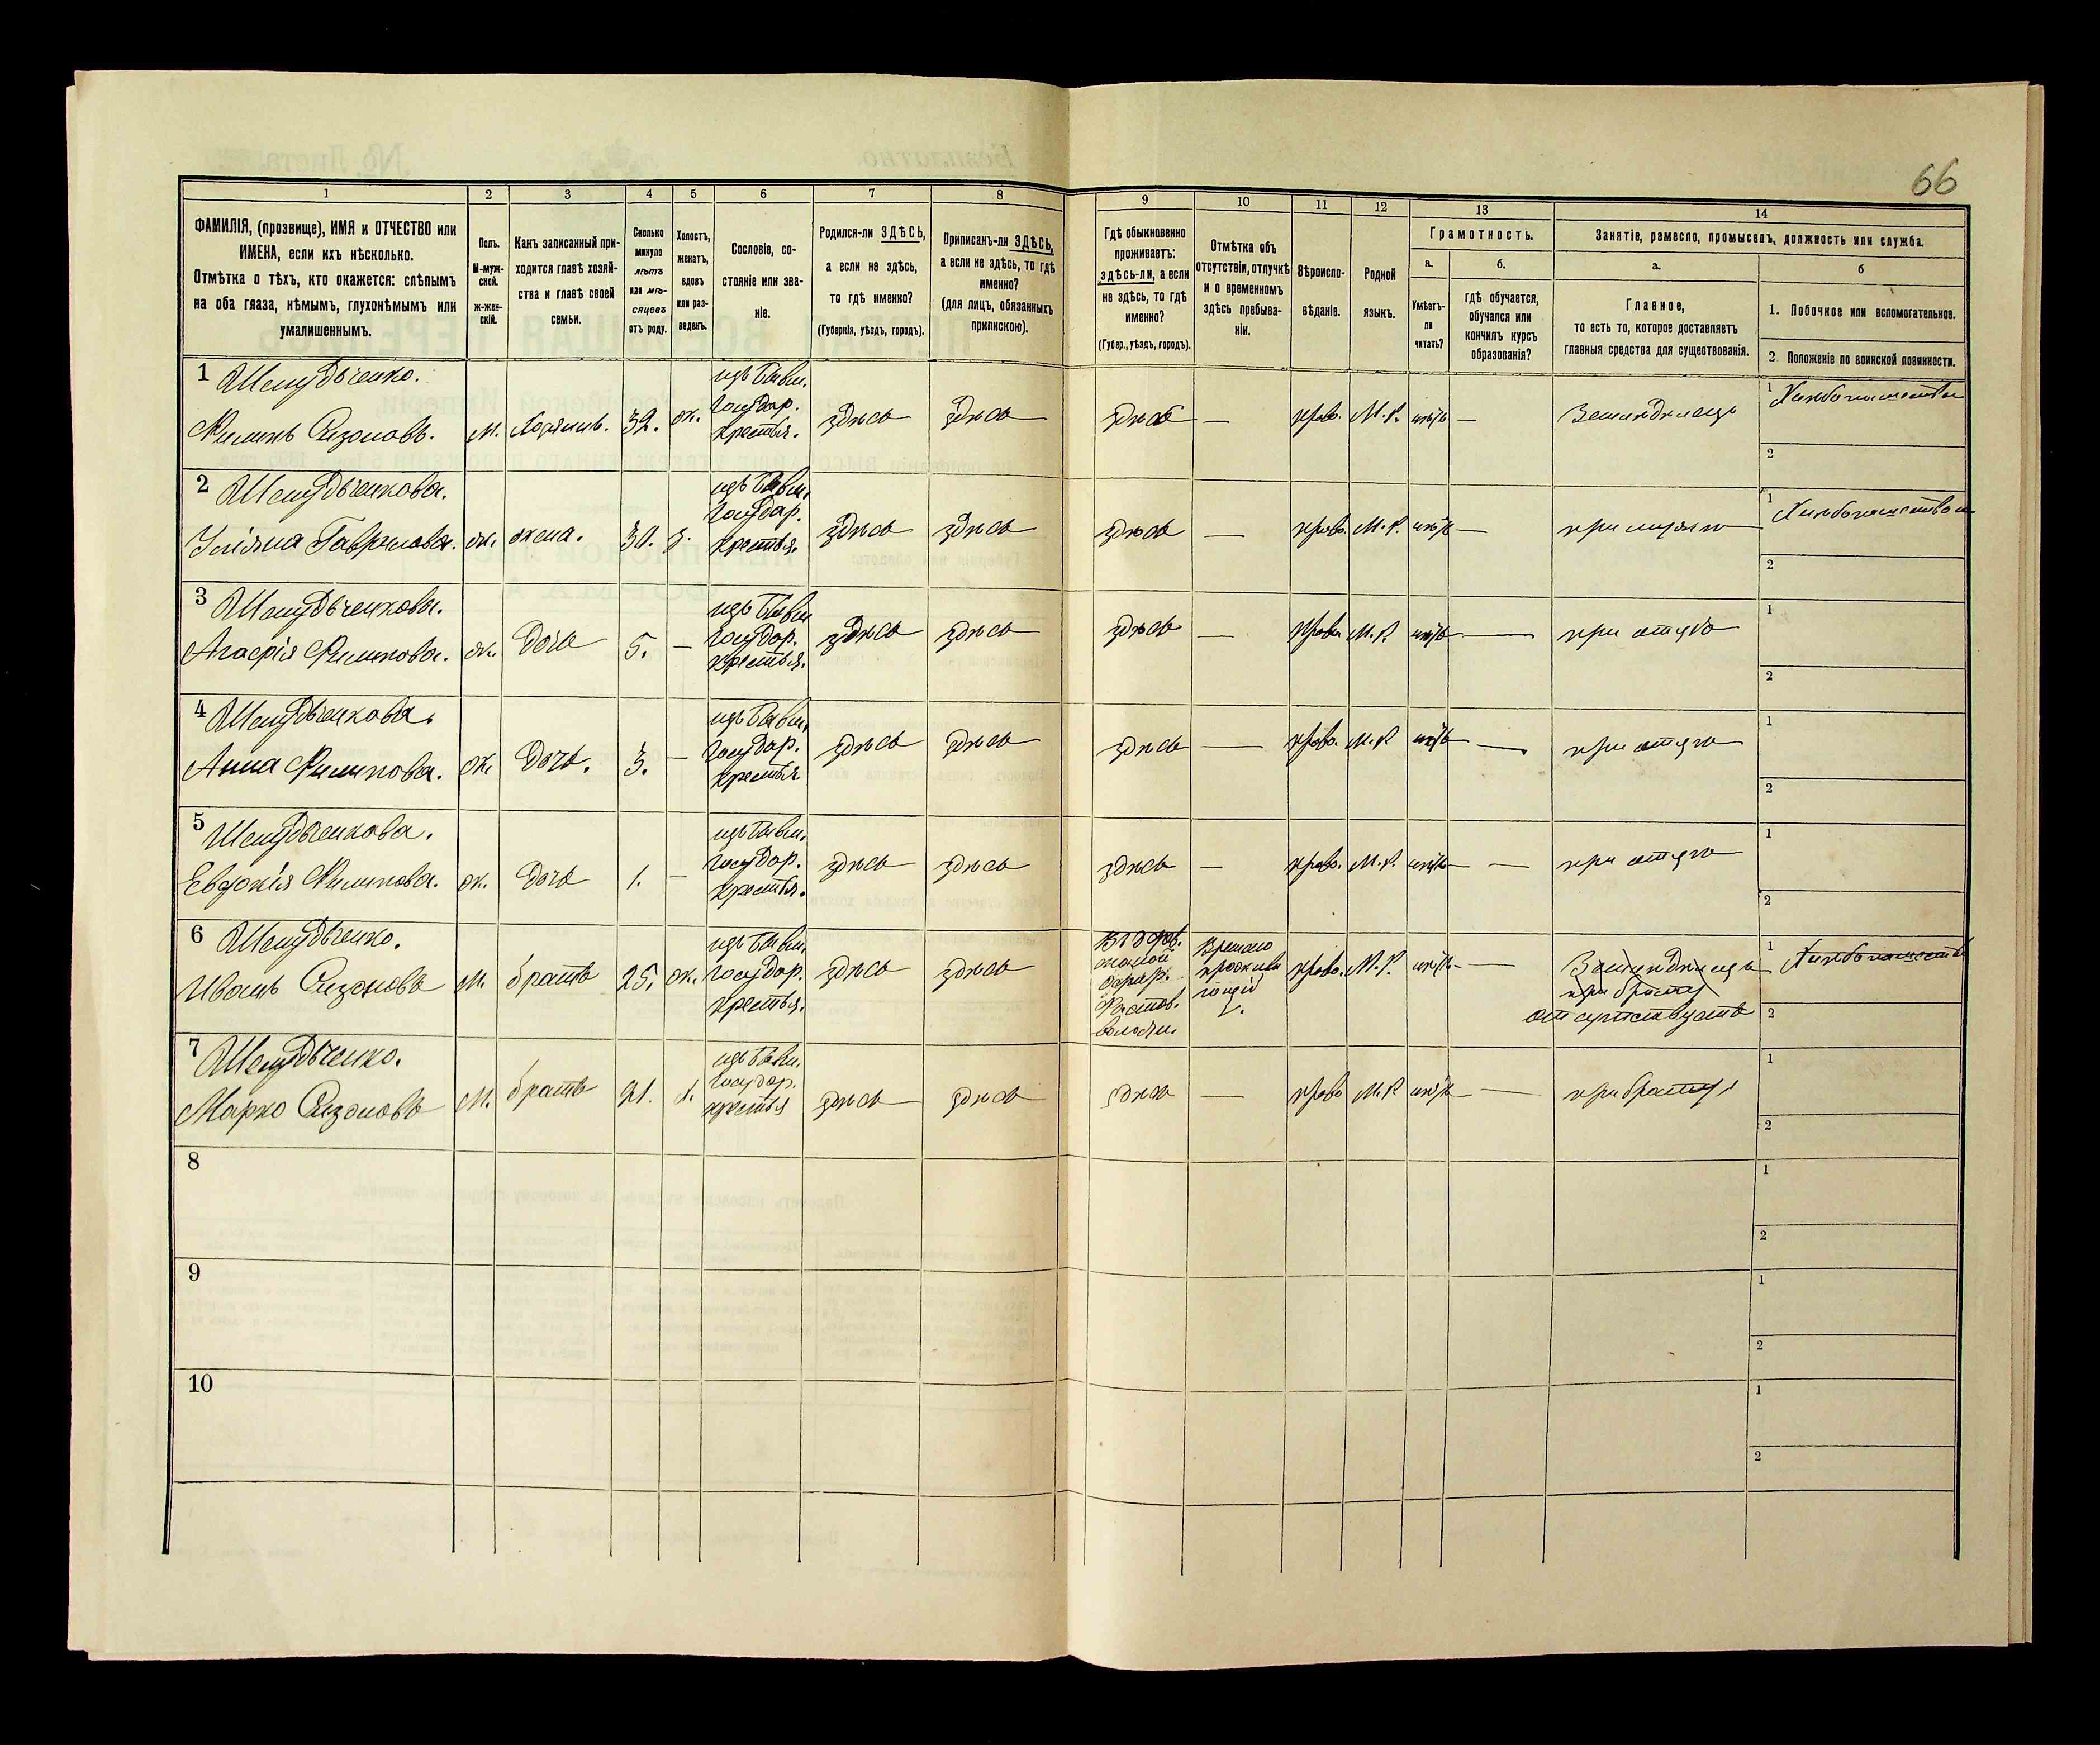 66
1 2 3 4 5 6 7 8 9 10 11 12 13 14
ФАМИЛІЯ, (прозвище), ИМЯ и ОТЧЕСТВО или
ИМЕНА, если ихъ нѣсколько.
Отмѣтка о тѣхъ, кто окажется: слѣпымъ
на оба глаза, нѣмымъ, глухонѣмымъ или
умалишеннымъ.
Полъ.
М-муж-
ской.
ж-жен-
скій.
Какъ записанный при-
ходится главѣ хозяй-
ства и главѣ своей
семьи.
Сколько
минуло
лѣтъ
или мѣ-
сяцевъ
отъ роду.
Холостъ,
женатъ,
вдовъ
или раз-
веденъ.
Сословіе, со-
стояніе или зва-
ніе.
Родился-ли ЗДѢСЬ,
а если не здѣсь,
то гдѣ именно?
(Губернія, уѣздъ, городъ).
Приписанъ-ли ЗДѢСЬ,
а если не здѣсь, то гдѣ
именно?
(для лицъ, обязанныхъ
припискою).
Гдѣ обыкновенно
проживаетъ:
здѣсь-ли, а если
не здѣсь, то гдѣ
именно?
(Губер., уѣздъ, городъ).
Отмѣтка объ
отсутствіи, отлучкѣ
и о временномъ
здѣсь пребыва-
ніи.
Вѣроиспо-
вѣданіе.
Родной
языкъ.
Грамотность.
а.
Умѣетъ-
ли
читать?
б.
гдѣ обучается,
обучался или
кончилъ курсъ
образованія?
Занятіе, ремесло, промыселъ, должность или служба.
а.
Главное,
то есть то, которое доставляетъ
главныя средства для существованія.
б
1. Побочное или вспомогательное.
2. Положеніе по воинской повинности.
1 Шелудченко. изъ бывш. 1
Филипъ Сизоновъ. м. хозяинъ. 32. ж. Государ. здѣсь здѣсь здѣсь — прав. М.Р. нѣтъ — Земледѣлецъ
крестья. 2
2 Шелудченкова. изъ бывш. 1
Уліяна Гаврилова. ж. жена. 30. з. Государ. здѣсь здѣсь здѣсь — право. М.Р. нѣтъ — при мужѣ
крестья. 2
3 Шелудченкова. изъ бывш 1
Агафія Филипова. ж. дочь 5. — Государ. здѣсь здѣсь здѣсь — право М.Р. нѣтъ — при отцѣ
крестья. 2
4 Шелудченкова. изъ бывш. 1
Анна Филипова. ж. дочь. 3. — Государ. здѣсь здѣсь здѣсь — право. М.Р. нѣтъ — при отцѣ
крестья 2
5 Шелудченкова. изъ бывш. 1
Евдокія Филипова. ж. дочь 1. — Государ. здѣсь здѣсь здѣсь — право. М.Р. нѣтъ — при отцѣ
крестья. 2
6 Шелудченко. изъ бывш. 1
Иванъ Сизоновъ м. братъ 25. ж. Государ. здѣсь здѣсь право. М.Р. нѣтъ — Земледѣлецъ
крестья. при братѣ
отсутствуетъ 2
7 Шелудченко. изъ бывш. 1
Марко Сизоновъ м. братъ 21. х. Государ. здѣсь здѣсь здѣсь — право М.Р. нѣтъ — при братѣ
крестья 2
8 1
2
9 1
2
10 1
2